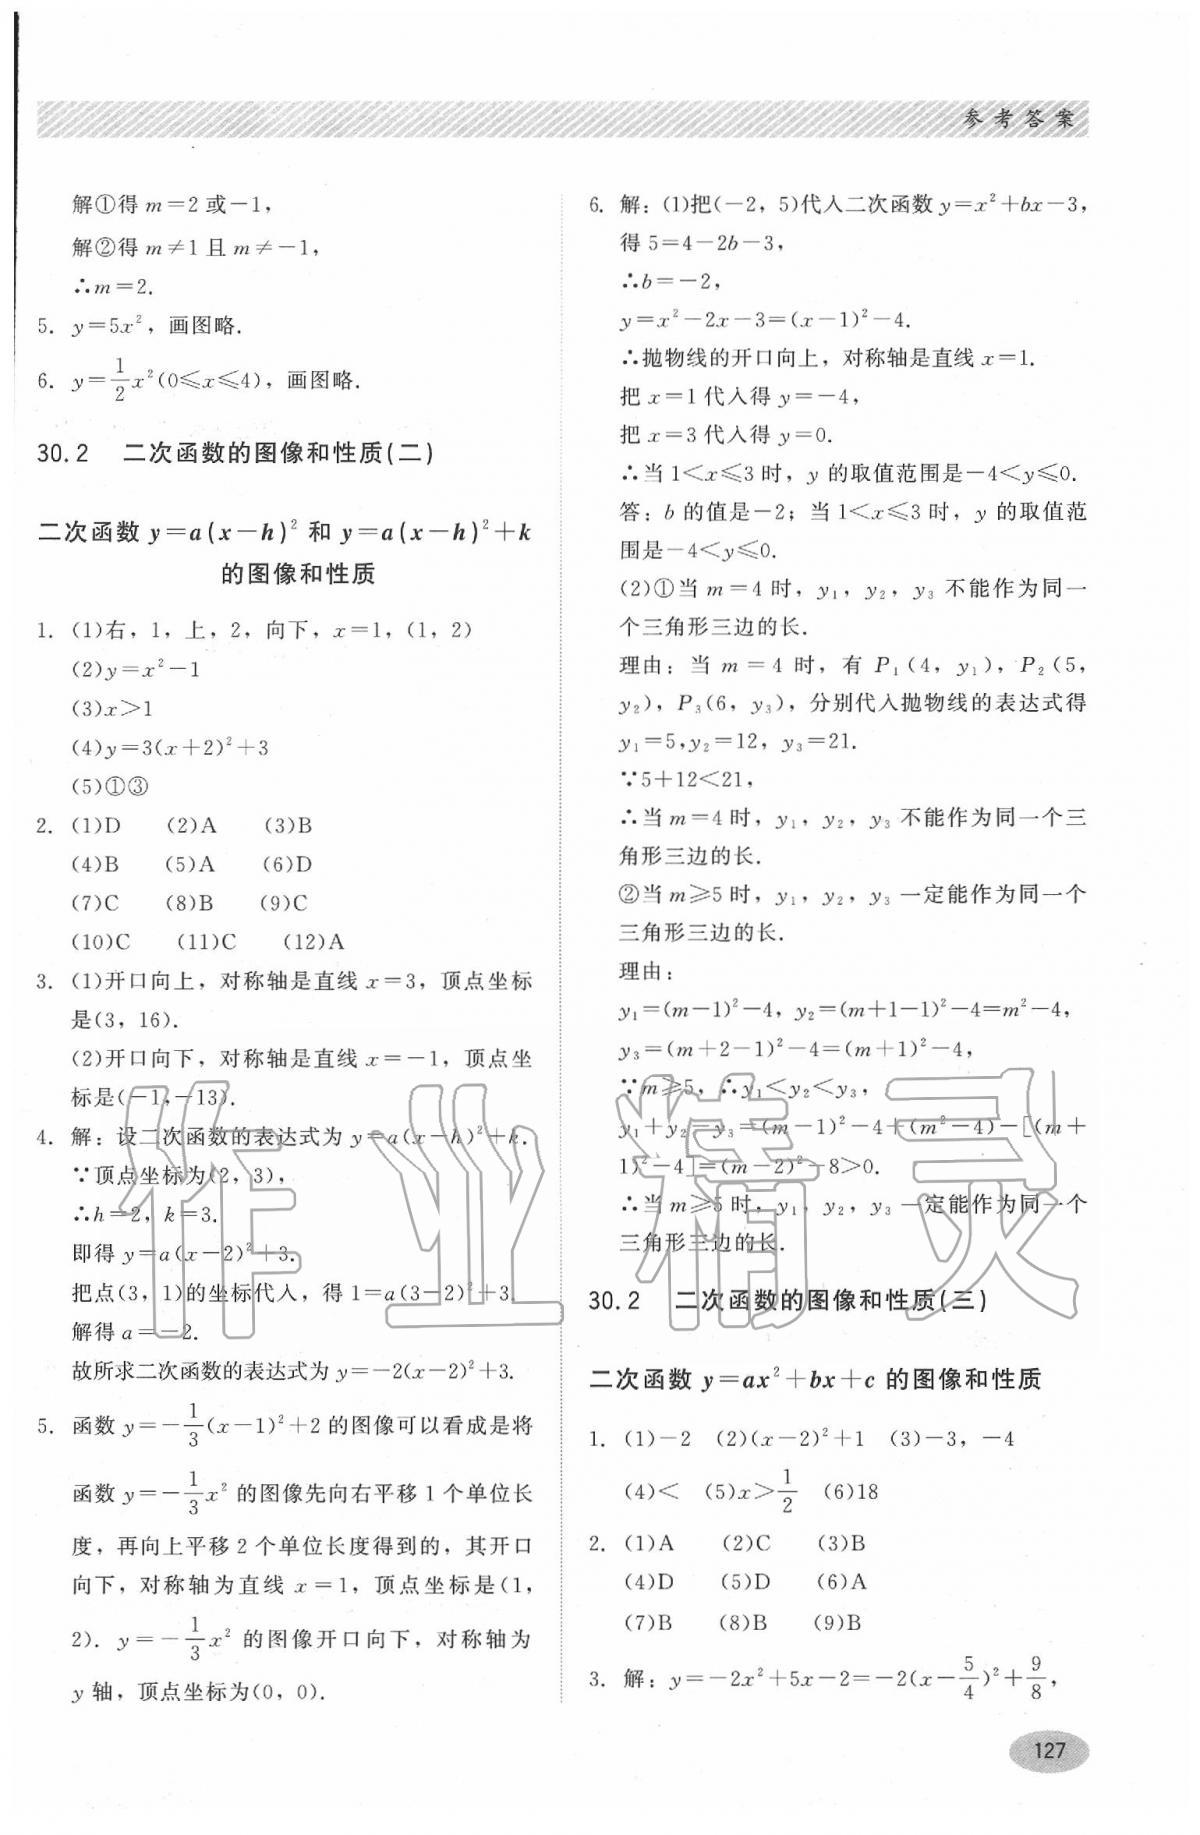 参考答案
解①得 m=2 或-1,
解②得 m≠1 且 m≠-1,
∴m=2.
5. y=5x²,画图略.
6. y=1/2x²(0≤x≤4),画图略.
30.2 二次函数的图像和性质(二)
二次函数 y=a(x-h)² 和 y=a(x-h)²+k
的图像和性质
1. (1)右,1,上,2,向下,x=1,(1,2)
(2)y=x²-1
(3)x>1
(4)y=3(x+2)²+3
(5)①③
2. (1)D (2)A (3)B
(4)B (5)A (6)D
(7)C (8)B (9)C
(10)C (11)C (12)A
3. (1)开口向上,对称轴是直线 x=3,顶点坐标
是(3,16).
(2)开口向下,对称轴是直线 x=-1,顶点坐
标是(-1,-13).
4. 解:设二次函数的表达式为 y=a(x-h)²+k.
∵顶点坐标为(2,3),
∴h=2,k=3.
即得 y=a(x-2)²+3.
把点(3,1)的坐标代入,得 1=a(3-2)²+3.
解得 a=-2.
故所求二次函数的表达式为 y=-2(x-2)²+3.
5. 函数 y=-1/3(x-1)²+2 的图像可以看成是将
函数 y=-1/3x² 的图像先向右平移 1 个单位长
度,再向上平移 2 个单位长度得到的,其开口
向下,对称轴为直线 x=1,顶点坐标是(1,
2). y=-1/3x² 的图像开口向下,对称轴为
y 轴,顶点坐标为(0,0).
6. 解:(1)把(-2,5)代入二次函数 y=x²+bx-3,
得 5=4-2b-3,
∴b=-2,
y=x²-2x-3=(x-1)²-4.
∴抛物线的开口向上,对称轴是直线 x=1.
把 x=1 代入得 y=-4,
把 x=3 代入得 y=0.
∴当 1<x≤3 时,y 的取值范围是-4<y≤0.
答:b 的值是-2;当 1<x≤3 时,y 的取值范
围是-4<y≤0.
(2)①当 m=4 时,y₁,y₂,y₃ 不能作为同一
个三角形三边的长.
理由:当 m=4 时,有 P₁(4,y₁),P₂(5,
y₂),P₃(6,y₃),分别代入抛物线的表达式得
y₁=5,y₂=12,y₃=21.
∵5+12<21,
∴当 m=4 时,y₁,y₂,y₃ 不能作为同一个三
角形三边的长.
②当 m≥5 时,y₁,y₂,y₃ 一定能作为同一个
三角形三边的长.
理由:
y₁=(m-1)²-4,y₂=(m+1-1)²-4=m²-4,
y₃=(m+2-1)²-4=(m+1)²-4,
∵m≥5,∴y₁<y₂<y₃,
y₁+y₂-y₃=(m-1)²-4+(m²-4)-[(m+
1)²-4]=(m-2)²-8>0.
∴当 m≥5 时,y₁,y₂,y₃ 一定能作为同一个
三角形三边的长.
30.2 二次函数的图像和性质(三)
二次函数 y=ax²+bx+c 的图像和性质
1. (1)-2 (2)(x-2)²+1 (3)-3,-4
(4)< (5)x>1/2 (6)18
2. (1)A (2)C (3)B
(4)D (5)D (6)A
(7)B (8)B (9)B
3. 解:y=-2x²+5x-2=-2(x-5/4)²+9/8,
127
作业精灵